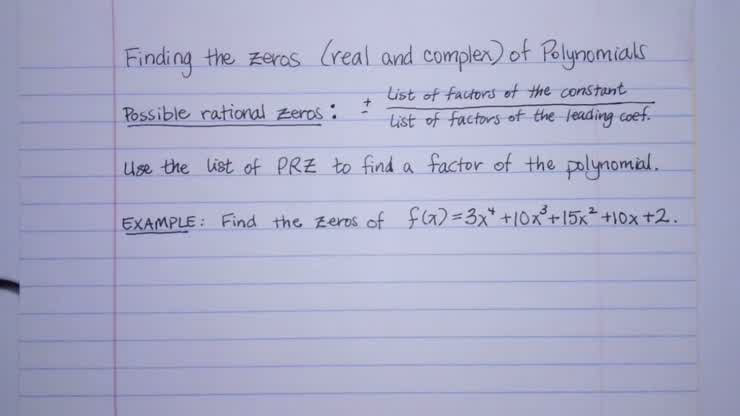 Finding the zeros (real and complex) of Polynomials
Possible rational zeros: ± List of factors of the constant / List of factors of the leading coef.
Use the list of PRZ to find a factor of the polynomial.
EXAMPLE: Find the zeros of f(x)=3x⁴+10x³+15x²+10x+2.